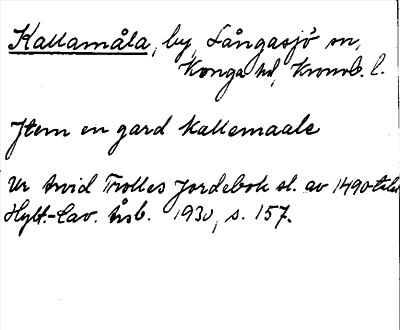 Kallamåla, by, Långasjö sn,
Konga hd, Kronob. l.
Item en gard Kallemaale
Ur Arvid Trolles Jordebok sl. av 1490-talet
Hylt.-Cav. Årsb. 1930, s. 157.